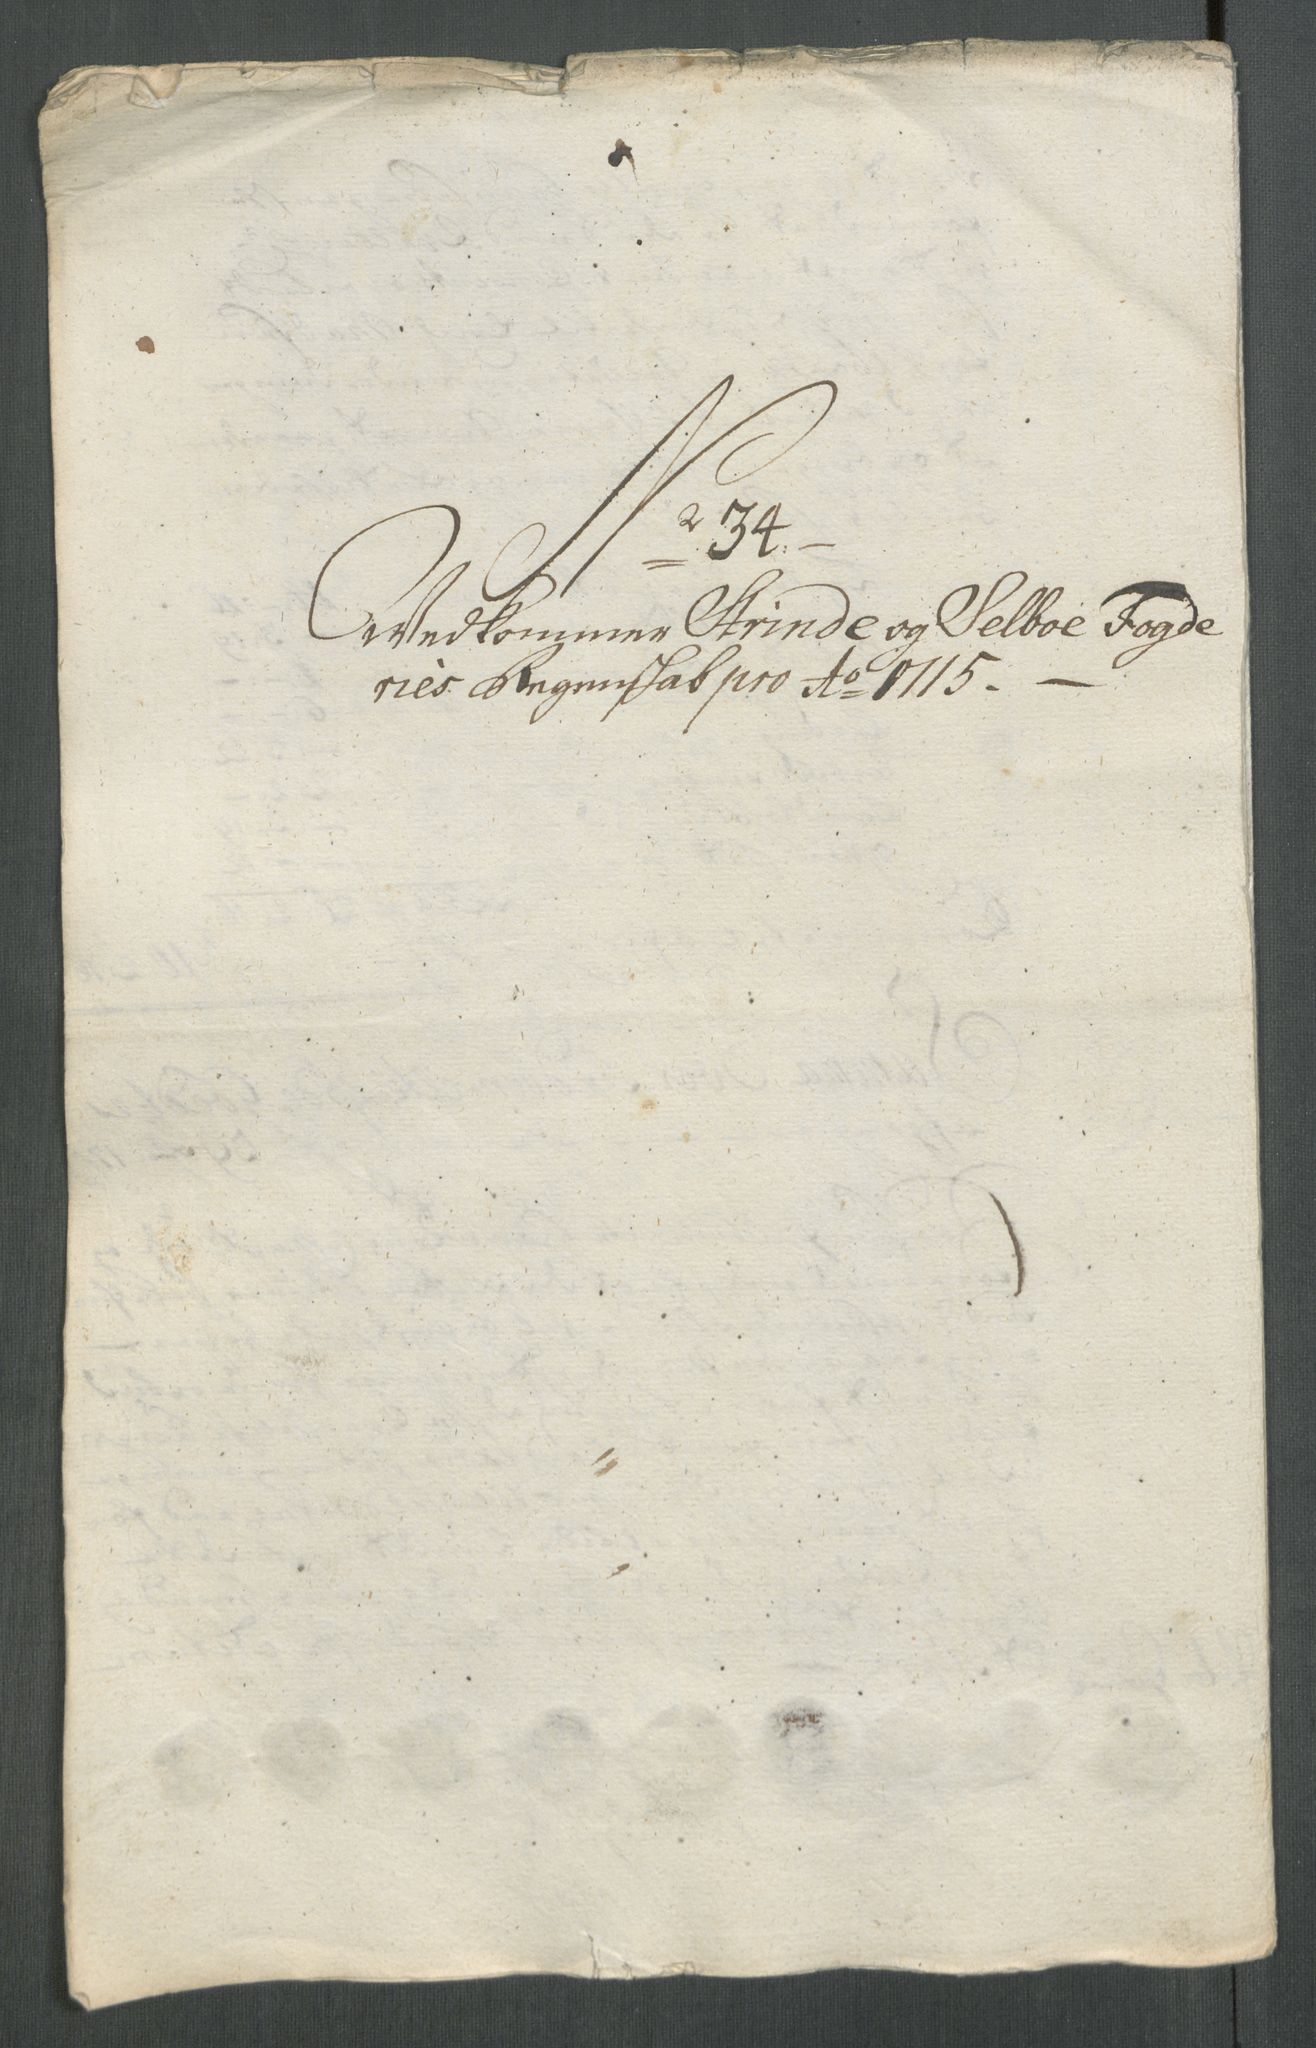 No 34. —
Vedkommer Strinde og Selboe Fogde
riès Regenskab pro Ao 1715. —